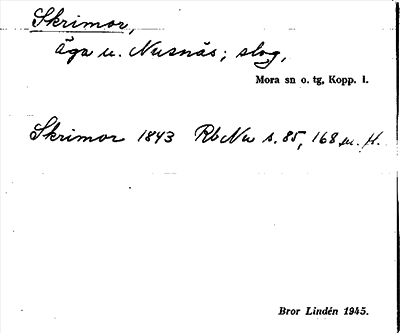 Skrimor,
äga u. Nusnäs; slog,
Mora sn o. tg, Kopp. l.
Skrimor 1843 Rb Nu s. 85, 168 m. fl.
Bror Lindén 1945.